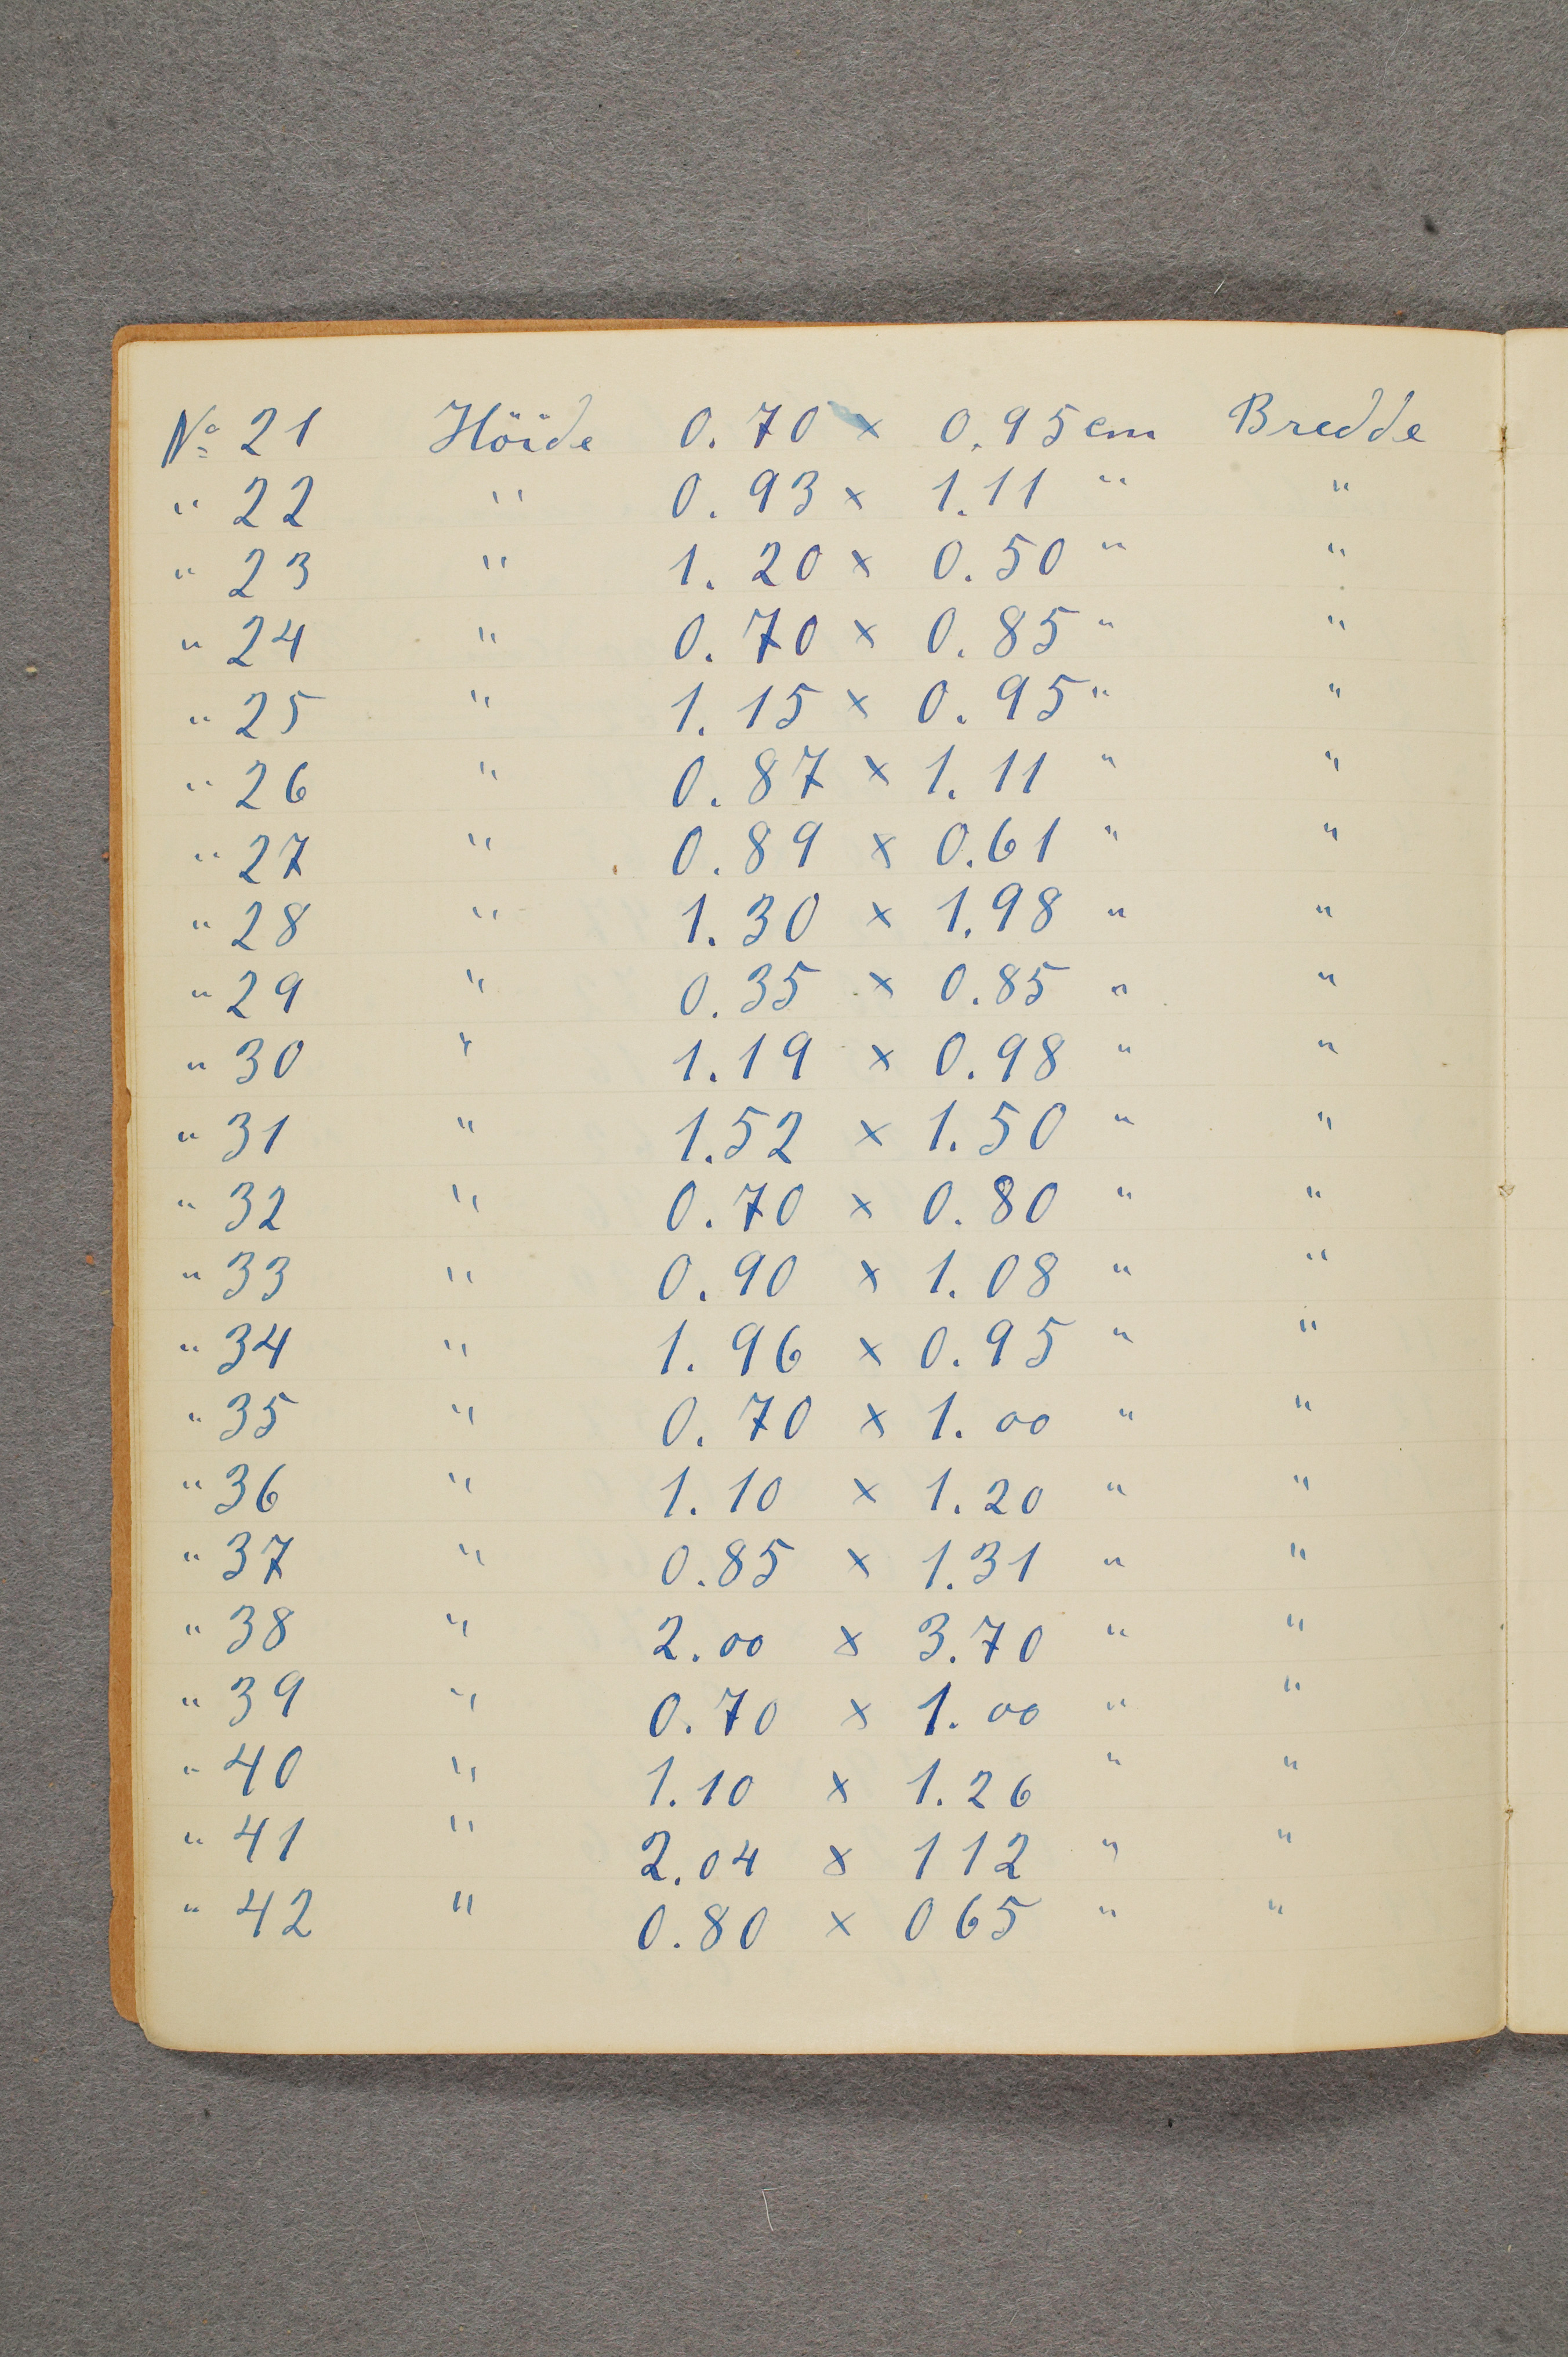 Nº 21 Höide 0.70 x 0.95 cm Bredde
" 22 " 0.93 x 1.11 " "
" 23 " 1.20 x 0.50 " "
" 24 " 0.70 x 0.85 " "
" 25 " 1.15 x 0.95 " "
" 26 " 0.87 x 1.11 " "
" 27 " 0.89 x 0.61 " "
" 28 " 1.30 x 1.98 " "
" 29 " 0.35 x 0.85 " "
" 30 " 1.19 x 0.98 " "
" 31 " 1.52 x 1.50 " "
" 32 " 0.70 x 0.80 " "
" 33 " 0.90 x 1.08 " "
" 34 " 1.96 x 0.95 " "
" 35 " 0.70 x 1.00 " "
" 36 " 1.10 x 1.20 " "
" 37 " 0.85 x 1.31 " "
" 38 " 2.00 x 3.70 " "
" 39 " 0.70 x 1.00 " "
" 40 " 1.10 x 1.26 " "
" 41 " 2.04 x 112 " "
" 42 " 0.80 x 065 " "